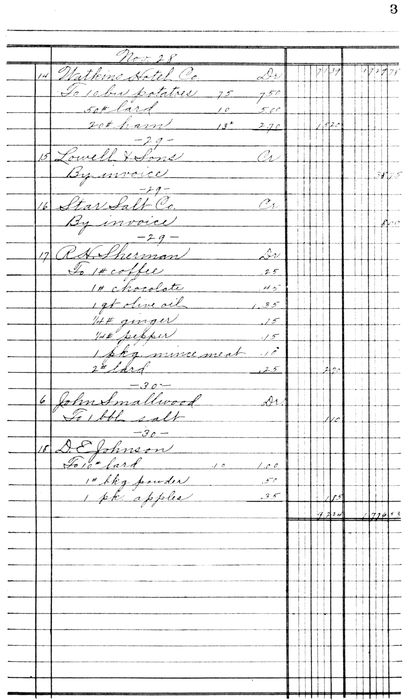 3
Nov. 28
14 Watkins Hotel Co. Dr
To 10 bu potatoes 75 7.50
50# lard 10 5.00
20# ham 2.70 1520
-29-
15 Lowell & Sons Cr
By invoice
-29-
16 Star Salt Co. Cr
By invoice
-29-
17 R. H. Sherman Dr
To 1# coffee .25
1# chocolate .45
1 qt olive oil 1.35
1/4# ginger .15
1/4# pepper .15
1 pkg mince meat
2# lard .25
-30-
6 John Smallwood Dr
To 1 bbl salt 110
-30-
18 D. E. Johnson
To 10# lard 10 1.00
1# bkg powder .50
1 pk apples .35 185